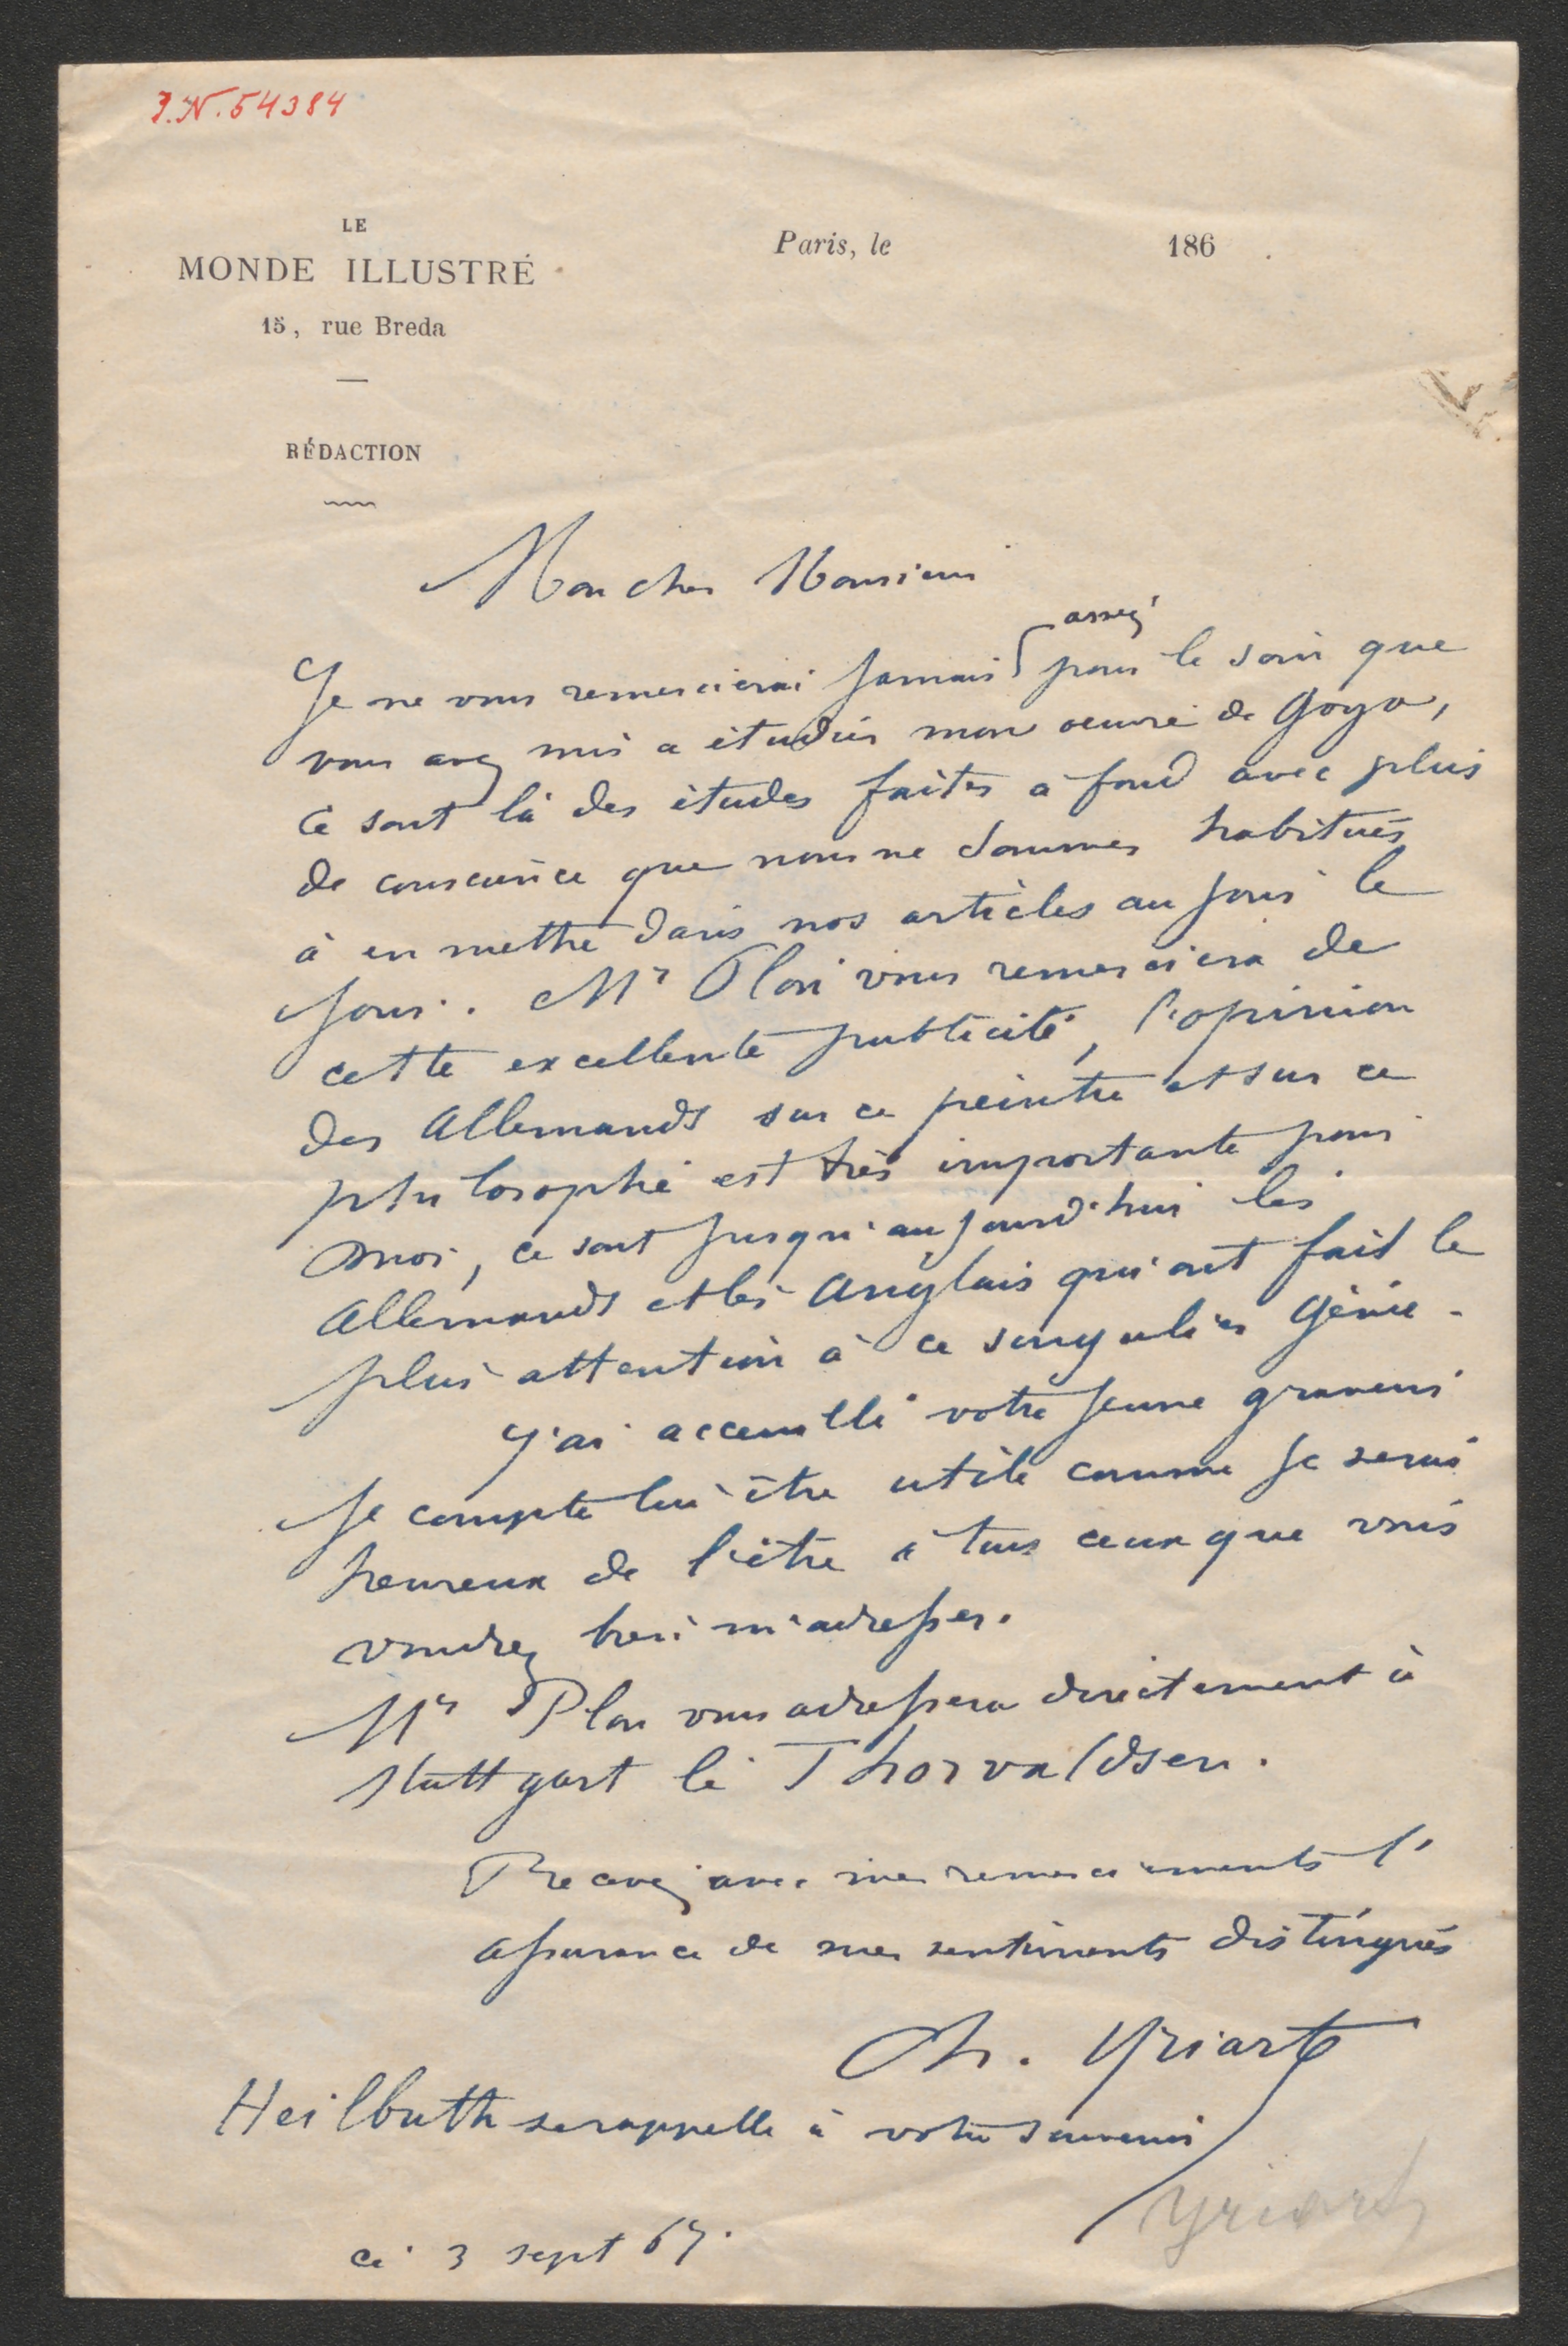 J.N. 54384
LE
MONDE ILLUSTRÉ
15, rue Breda
RÉDACTION
Paris, le 186
Mon cher Monsieur
assez
Je ne vous remercierai jamais pour le soin que
vous avez mis a étudier mon oeuvre de Goya,
ce sont là des études faites a fond avec plus
de conscience que nous ne sommes habitués
à en mettre dans nos articles au jour le
jour. Mr Plon vous remerciera de
cette excellente publicité, l'opinion
des Allemands sur ce peintre et sur ce
philosophe est très importante pour
moi, ce sont jusqu'aujourd'hui les
Allemands et les Anglais qui ont fait le
plus attention à ce singulier génie.
J'ai accueilli votre jeune graveur
Je compte lui être utile comme je serai
heureux de l'être à tous ceux que vous
voudrez bien m'adresser.
Mr Plon vous adressera directement à
Stuttgart le Thorvaldsen.
Recevez avec mes remerciements l'
assurance de mes sentiments distingués
Ch. Yriarte
Heilbuth se rappelle à votre souvenir
Yriarte
ce 3 sept 67.